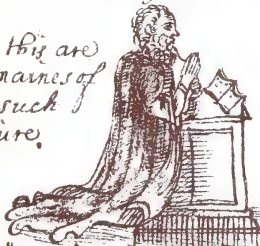 this are
names of
such
ure.